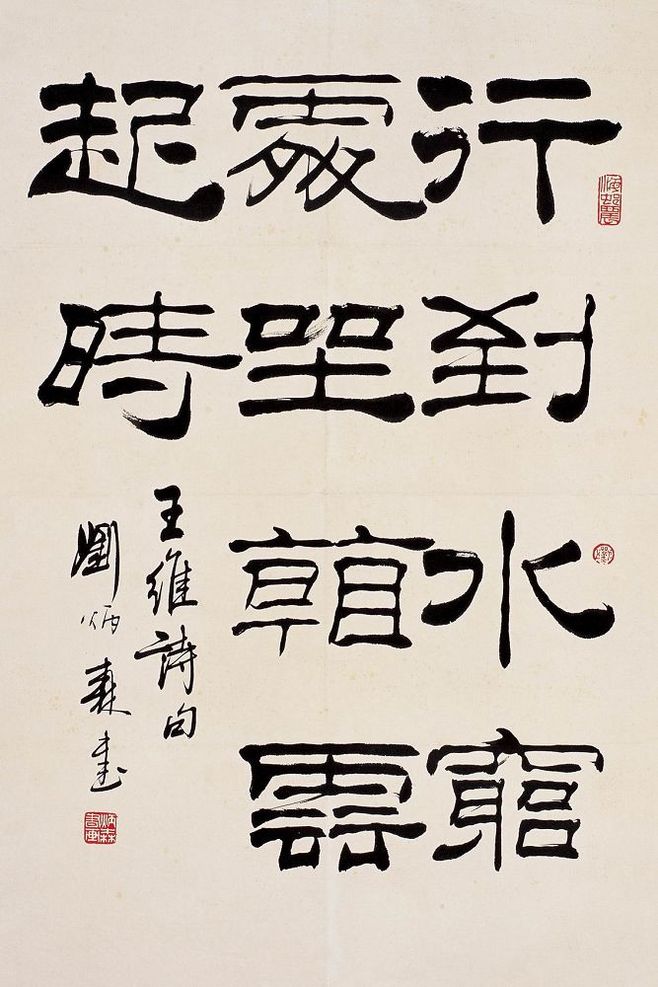 行到水窮
處坐看雲
起時
王維詩句
劉炳森書
炳森
書画